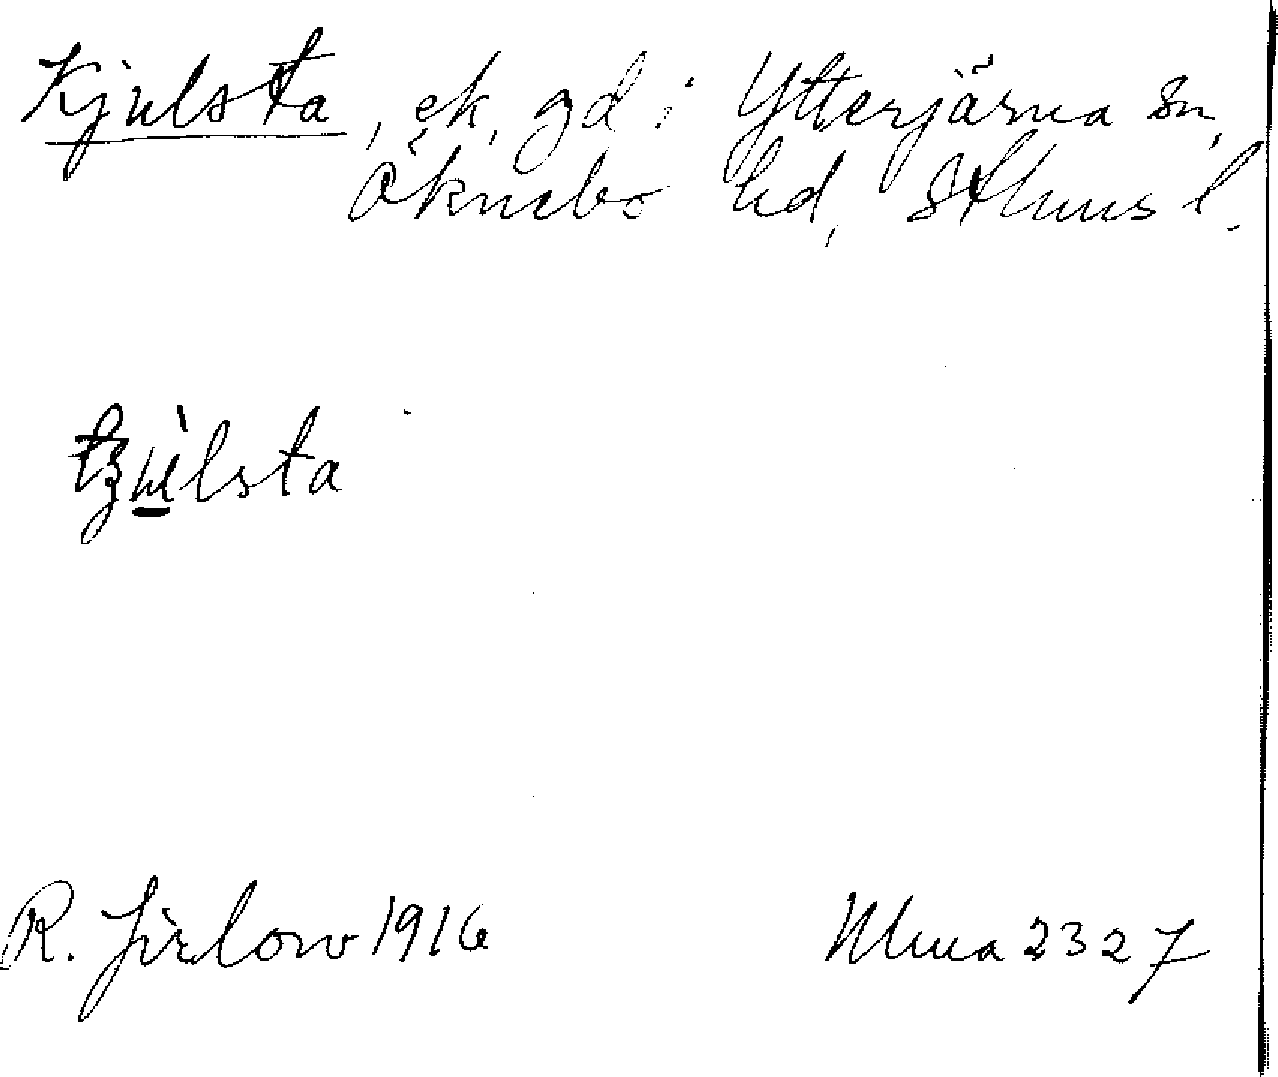 Kjulsta, ek. gd i Ytterjärna sn,
Öknebo hd, Sthms l.
tʒùlsta
R. Jirlow 1916
Ulma 2327